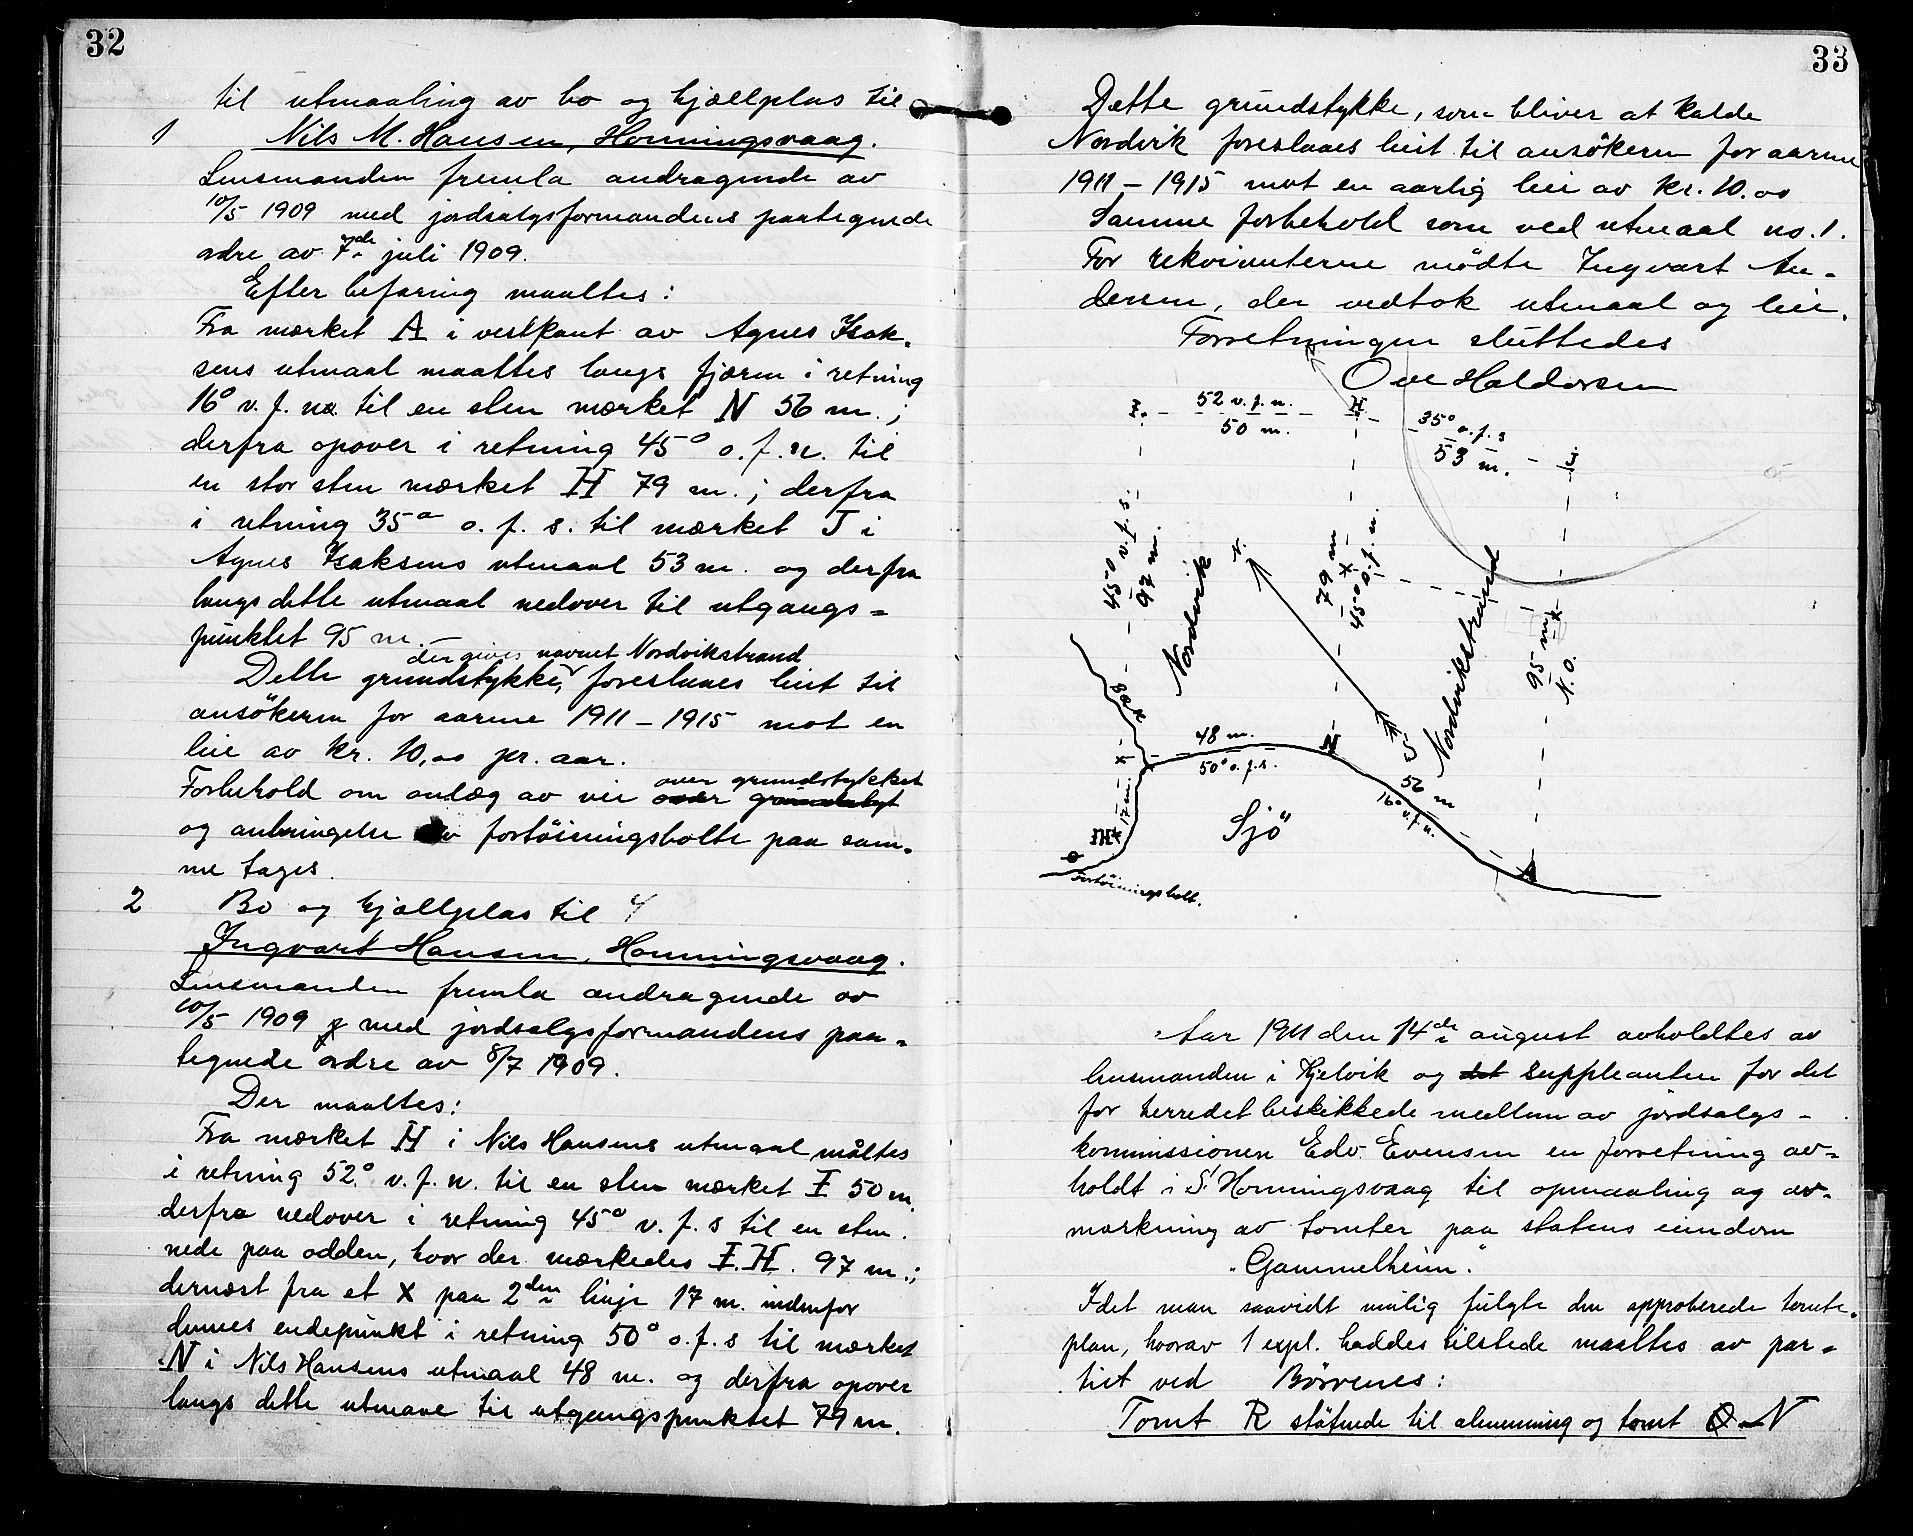 32
til utmaaling av bo og hjællplas til
1 Nils M. Hansen, Honningsvaag.
Lensmanden fremla andragende av
10/5 1909 med jordsalgsformandens paategnede
ordre av 7de juli 1909.
Efter befaring maaltes:
Fra mærket A i vestkant av Agnes Isak-
sens utmaal maaltes langs fjæren i retning
16° v.f.n. til en sten mærket N 56 m.;
derfra opover i retning 45° o.f.n. til
en stor sten mærket H 79 m.; derfra
i retning 35° o.f.s. til mærket J i
Agnes Isaksens utmaal 53 m. og derfra
langs dette utmaal nedover til utgangs-
punktet 95 m.
der gives navnet Nordvikstrand
Dette grundstykke, foreslaaes leiet til
ansökeren for aarene 1911-1915 mot en
leie av kr. 10,00 pr. aar.
over grundstykket
Forbehold om anlæg av vei
og anbringelse av fortöiningsbolte paa sam-
me tages.
2 Bo og hjællplas til
Ingvart Hansen, Honningsvaag.
Lensmanden fremla andragende av
10/5 1909 med jordsalgsformandens paa-
tegnede ordre av 8/7 1909.
Der maaltes:
Fra mærket H i Nils Hansens utmaal måltes
i retning 52° v.f.n. til en sten mærket I 50 m.
derfra nedover i retning 45° v.f.s til en sten
nede paa odden, hvor der mærkedes I.H. 97 m.;
dernæst fra et X paa 2den linje 17 m. indenfor
dennes endepunkt i retning 50° o.f.s til mærket
N i Nils Hansens utmaal 48 m. og derfra opover
langs dette utmaal til utgangspunktet 79 m.
33
Dette grundstykke, som bliver at kalde
Nordvik foreslaaes leiet til ansökeren for aarene
1911-1915 mot en aarlig leie av kr. 10.00
Samme forbehold som ved utmaal no. 1.
For rekvirenterne mödte Ingvart An-
dersen, der vedtok utmaal og leie.
Forretningen sluttedes
Ove Haldorsen
I.
52 v.f.n.
50 m.
H
35° o.f.s
53 m.
J
45° v.f.s.
97 m.
Nordvik
N.
79 m
45° o.f.n.
Nordvikstrand
95 m
N.O.
Bæk
48 m.
50° o.f.s.
N
S
56 m
16° v.f.n.
17 m.
IH
Sjö
A
Fortöiningsbolt.
Aar 1911 den 14de august avholdtes av
lensmanden i Kjelvik og det suppleanten for det
for herredet beskikkede medlem av jordsalgs-
kommissionen Edv. Evensen en forretning av-
holdt i S. Honningsvaag til opmaaling og av-
mærkning av tomter paa statens eiendom
"Gammelheim".
Idet man saavidt mulig fulgte den approberede tomte-
plan, hvorav 1 expl. haddes tilstede maaltes av par-
tiet ved Börvenes:
Tomt R stötende til almenning og tomt Q - N